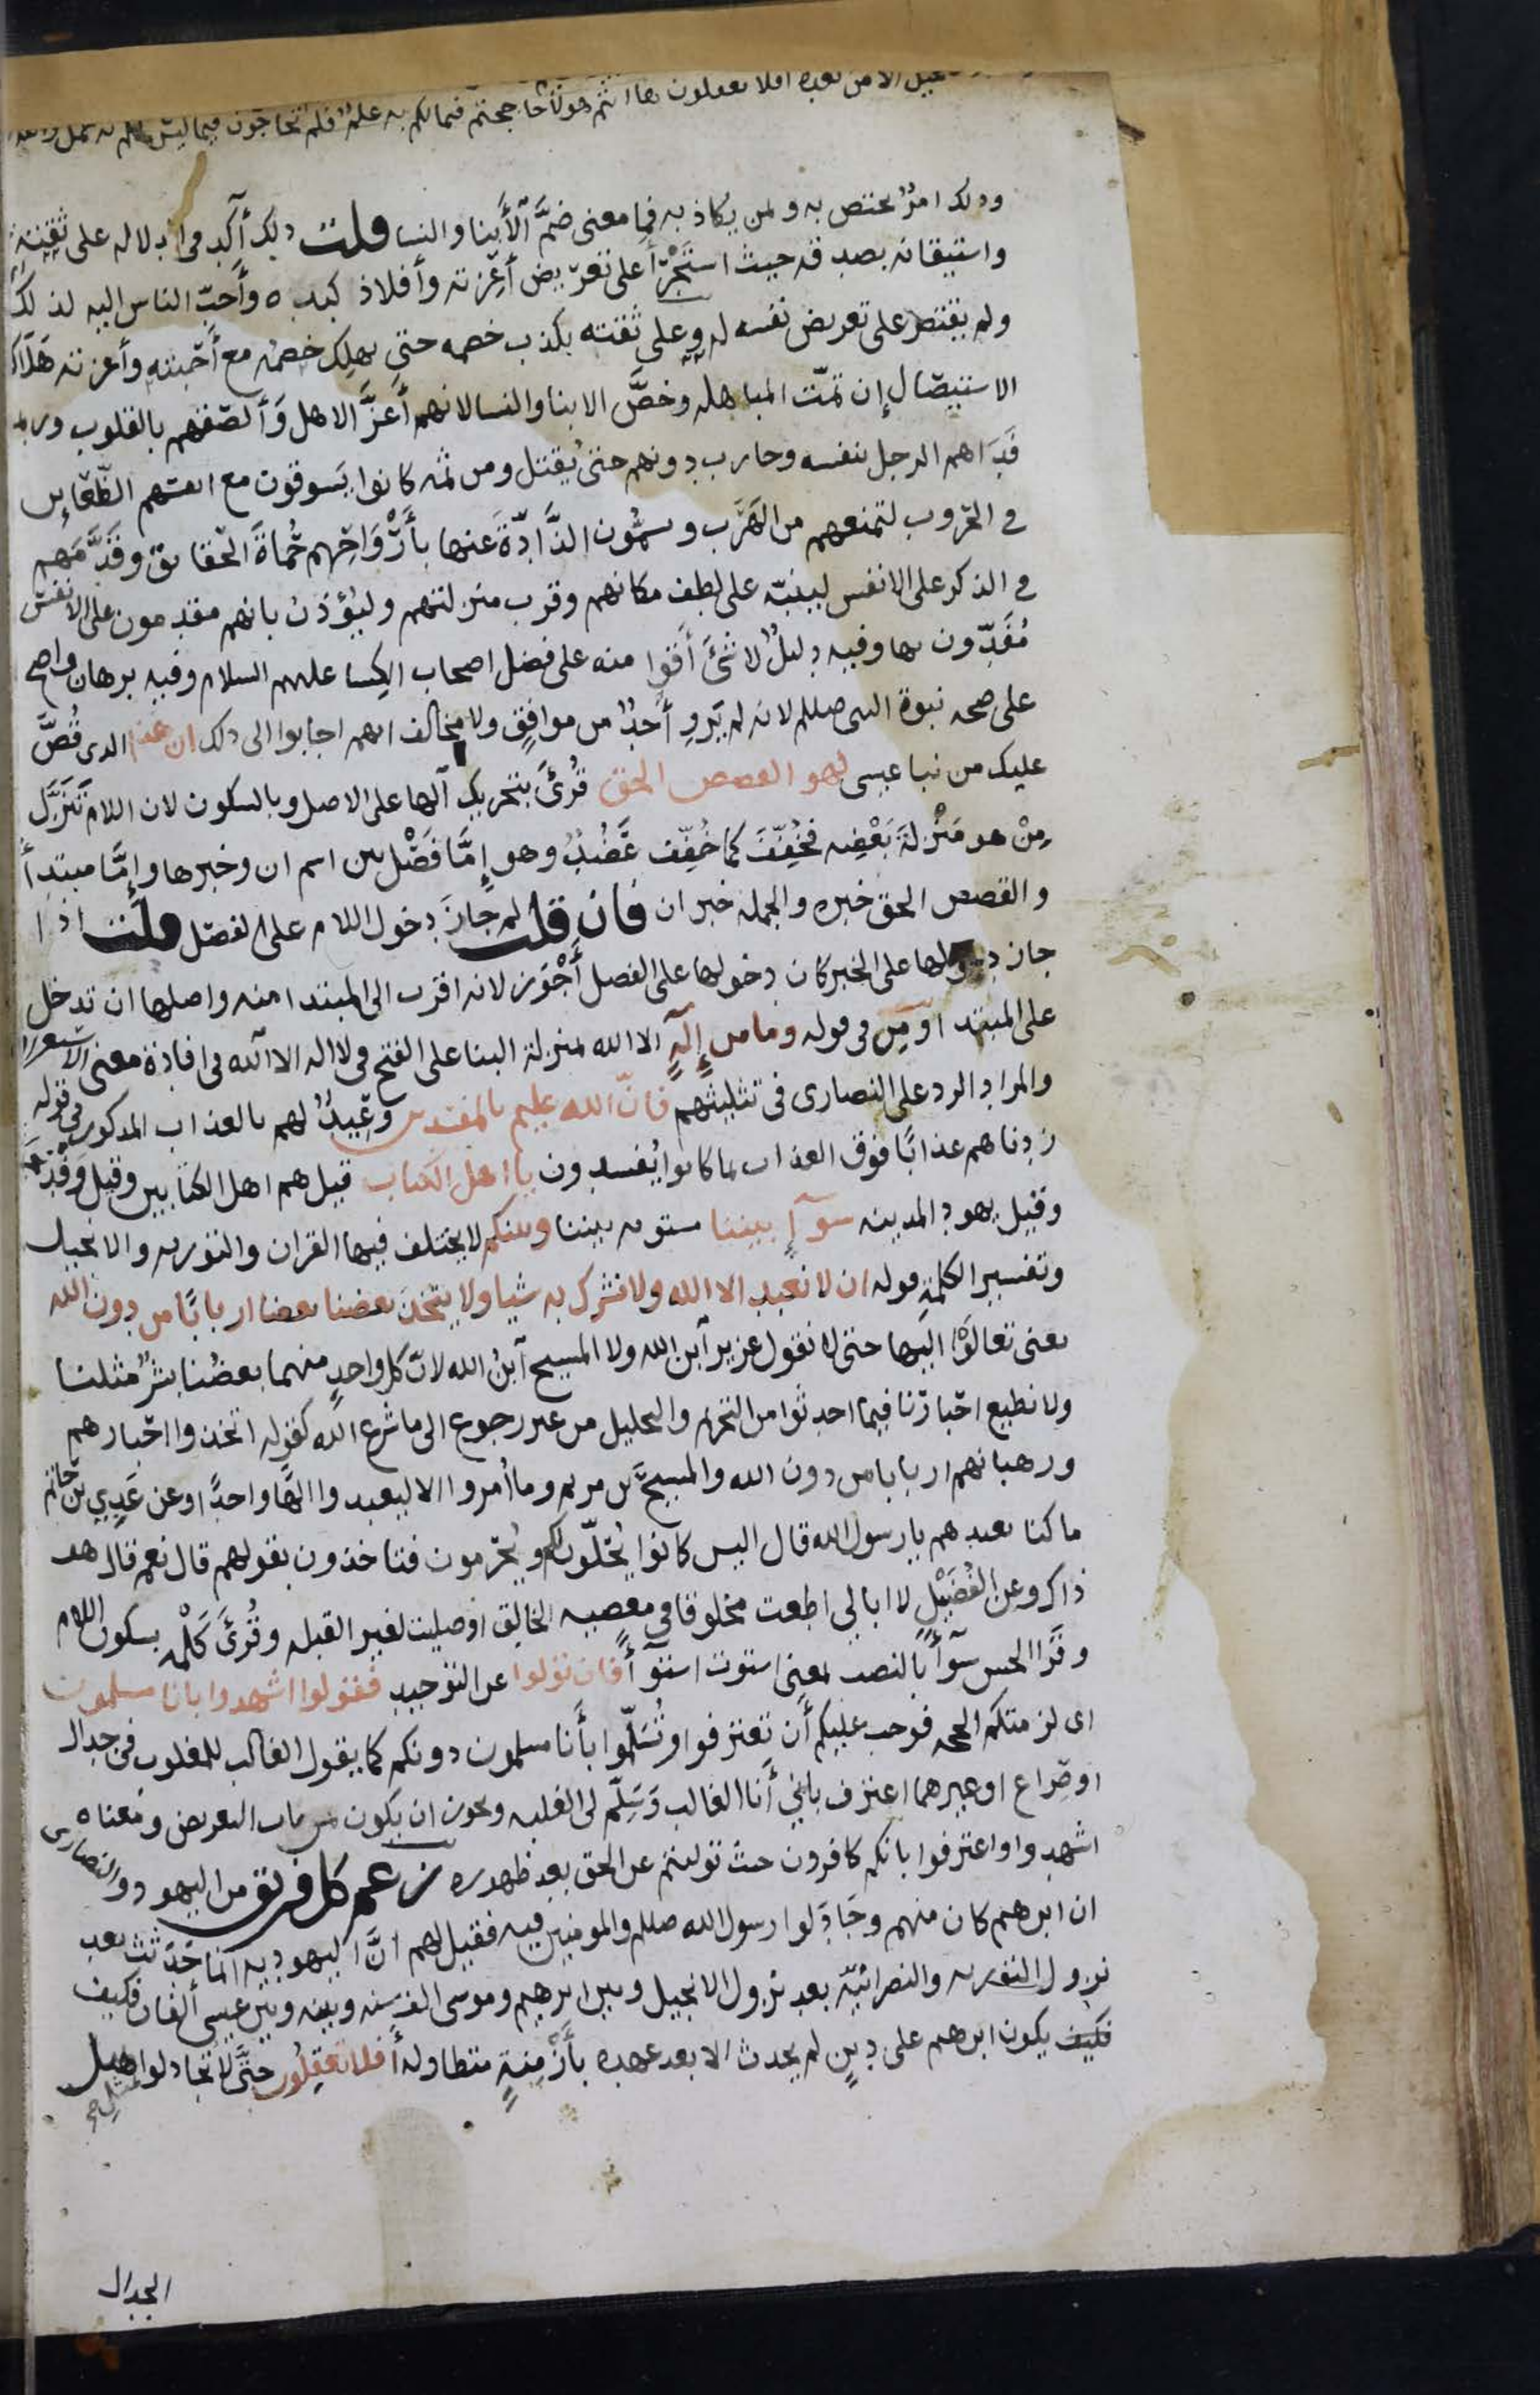 والانجيل الا من بعده افلا تعقلون ها انتم هولاء حاججتم فيما لكم به علم فلم تحاجون فيما ليس لكم به علم
ودلك امرٌ يختص به ولمن يكاذبه فما معنى ضمَّ الأبنا والنسا قلت دلك أكد في الدلاله على ثقته
واستيقانه بصدقه حيث استجرأ على تعريض أعزته وأفلاذ كبده وأحبّ الناس اليه لذلك
ولم يقتصر على تعريض نفسه له وعلى ثقته بكذب خصمه حتى يهلك خصمه مع أحبته وأعزته هلاك
الاستيصال إن تمّت المباهلة وخصَّ الابنا والنسا لانهم أعزَّ الاهل وألصقهم بالقلوب وربما
فَدَاهم الرجل بنفسه وحارب دونهم حتى يُقتل ومن ثمه كانوا يَسوقون مع انفسهم الظّعاين
في الحروب لتمنعهم من الهَرَب ويسمُّون الذَّادَةَ عنها بأرْوَاحِهم حُماةَ الحقايق وقدَّمَهم
في الذكر على الانفس لينبّه على لطف مكانهم وقرب منزلتهم وليُؤذن بانهم مقدمون على الانفس
مُفَدّون بها وفيه دليلٌ لا شئَ أقوا منه على فضل اصحاب الكسا عليهم السلام وفيه برهان واضح
على صحه نبوة النبى صللم لانه لم يَروِ أحدٌ من موافقٍ ولا مخالف انهم اجابوا الى دلك ان هذا الدى قُصَّ
عليك من نبا عيسى لهو القصص الحق قُرئَ بتحريك الها على الاصل وبالسكون لان اللام تَنَزَّل
مِنْ هو مَنْزلةَ بَعْضِه فخُفِّفَ كما خُفِّف عَضُدٌ وهو إمَّا فَصْل بين اسم ان وخبرها وإمَّا مبتدأ
والقصص الحق خبره والجمله خبر ان فان قلت لم جازَ دخول اللام على الفصل قلت اذا
جاز دخولها على الخبر كان دخولها على الفصل أجْوَز لانه اقرب الى المبتدا منه واصلها ان تدخل
على المبتدا ومِن في قوله وما من إلهٍ الا الله بمنزلة البنا على الفتح في لا اله الا الله في افادة معنى الاستغراق
والمراد الرد على النصارى فى تثليثهم فانّ الله عليم بالمفسدين وعِيدٌ لهم بالعذاب المدكور في قوله
زدناهم عذابًا فوق العذاب بما كانوا يُفسدون يا اهل الكتاب قيل هم اهل الكتابين وقيل وَفْد نجران
وقيل يهود المدينه سوآءٍ بيننا مستويه بيننا وبينكم لا يختلف فيها القران والتوريه والانجيل
وتفسير الكلمةِ قوله ان لا نعبد الا الله ولا نشرك به شيا ولا يتخذَ بعضنا بعضا اربابًا من دون الله
يعنى تعالَوْا اليها حتى لا نقول عزير آبن الله ولا المسيح آبنُ الله لانّ كل واحدٍ منهما بعضُنا بشرٌ مثلنا
ولا نطيع احْبارَنا فيما احدثوا من التحريم والتحليل من غير رجوع الى ما شرع الله كقوله اتخذوا احْبارهم
ورهبانهم اربابا من دون الله والمسيحَ بن مريم وما أمروا الا ليعبدوا الهًا واحدًا وعن عَدِيِ بن حاتم
ما كنا نعبدهم يا رسول الله قال اليس كانوا يُحلّون لكم ويُحرّمون فتاخذون بقولهم قال نعم قال هو
ذاك وعن الفُضَيْلِ لا ابالي اطعت مخلوقا في معصيه الخالق او صليت لغير القبله وقُرئَ كَلْمَه بسكون اللام
وقَرا الحسن سوآءً بالنصب بمعنى استوت استوآءً فان تولوا عن التوحيد فقولوا اشهدوا بانا مسلمون
اى لزمتكم الحجه فوجب عليكم أن تعترفوا وتُسَلّموا بأنا مسلمون دونكم كما يقول الغالب للمغلوب فى جدال
او صِراع او غيرهما اعترف بانِّي أنا الغالب وسَلِّم لى الغلبه ويجوز ان يكون من باب التعريض ومعناه
اشهدوا واعترفوا بانكم كافرون حيث توليتم عن الحق بعد ظهوره زعم كل فريق من اليهود والنصارى
ان ابرهيم كان منهم وجَادَلوا رسول الله صللم والمومنين فيه فقيل لهم انَّ اليهوديه انما حَدَثت بعد
نزول التوريه والنصرانيّه بعد نزول الانجيل وبين ابرهيم وموسى الف سنه وبينه وبين عيسى ألفان فكيف
فكيف يكون ابرهيم على دينٍ لم يحدث الا بعد عهده بأزْمِنةٍ متطاوله أفلا تعقِلون حتَّى لا تجادلوا مثل
الجدال